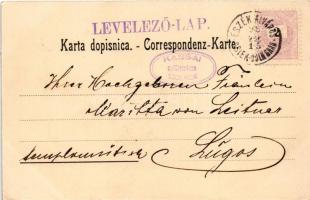 LEVELEZŐ-LAP.
Karta dopisnica. - Correspondenz-Karte.
KASSAI
Ihrer Hochgeboren Fräulein
Maritta von Leitner
Lúgos
templomutcza